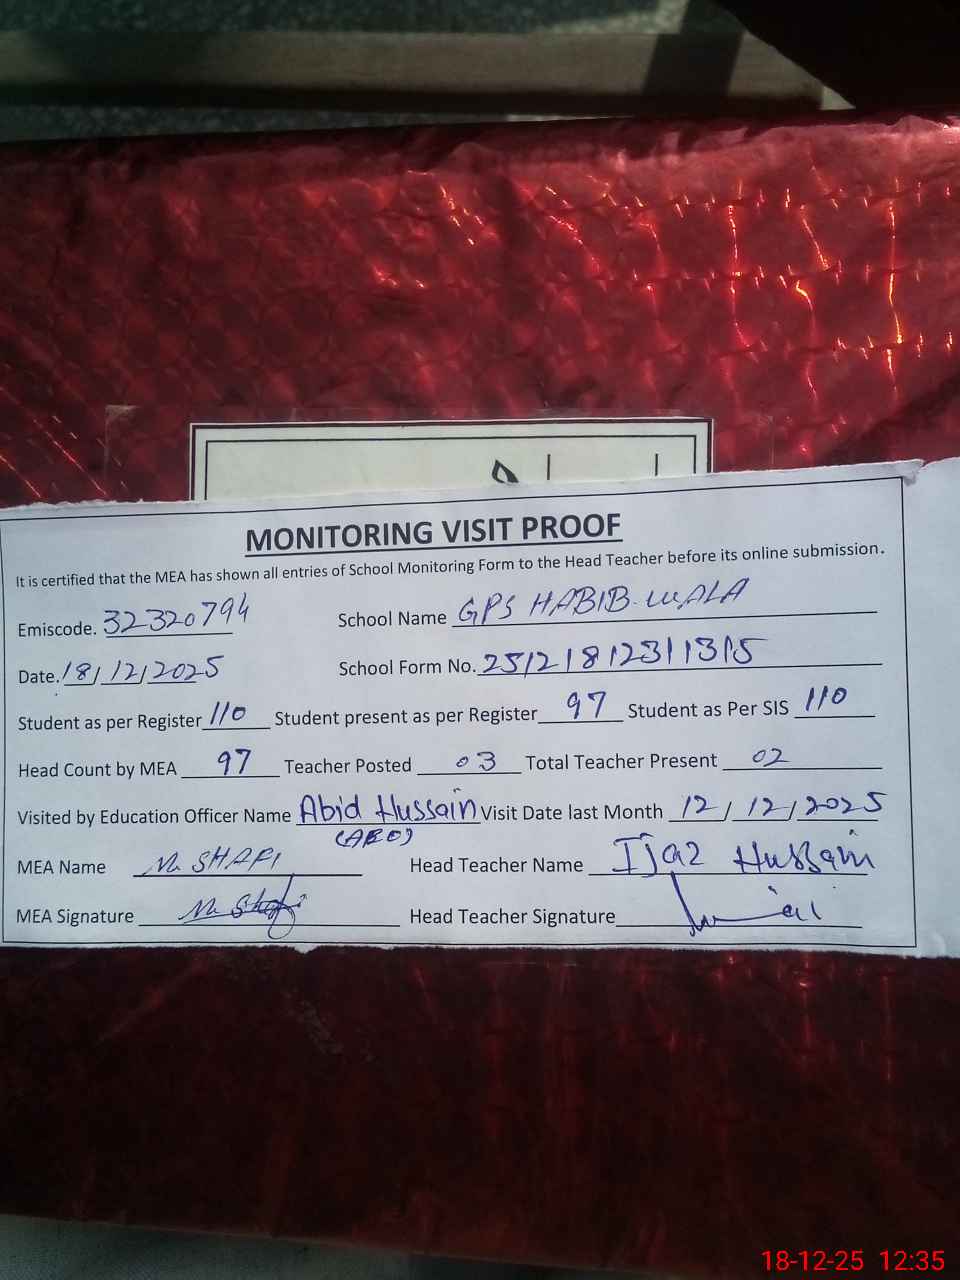 MONITORING VISIT PROOF
It is certified that the MEA has shown all entries of School Monitoring Form to the Head Teacher before its online submission.
Emiscode. 32320794 School Name GPS HABIB-WALA
Date. 18/12/2025 School Form No. 25121812311315
Student as per Register 110 Student present as per Register 97 Student as Per SIS 110
Head Count by MEA 97 Teacher Posted 03 Total Teacher Present 02
Visited by Education Officer Name Abid Hussain Visit Date last Month 12/12/2025
(AEO)
MEA Name M SHAFI Head Teacher Name Ijaz Hussain
MEA Signature M Shafi Head Teacher Signature
18-12-25 12:35